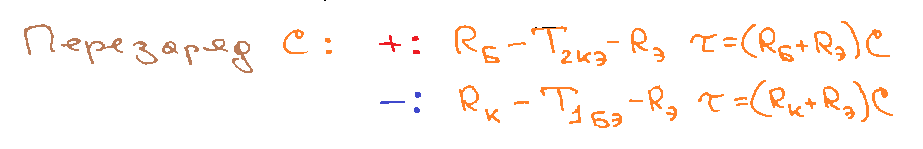 Перезаряд C: +: R_Б – T_2КЭ – R_Э τ=(R_Б+R_Э)C
–: R_К – T_1БЭ – R_Э τ=(R_К+R_Э)C